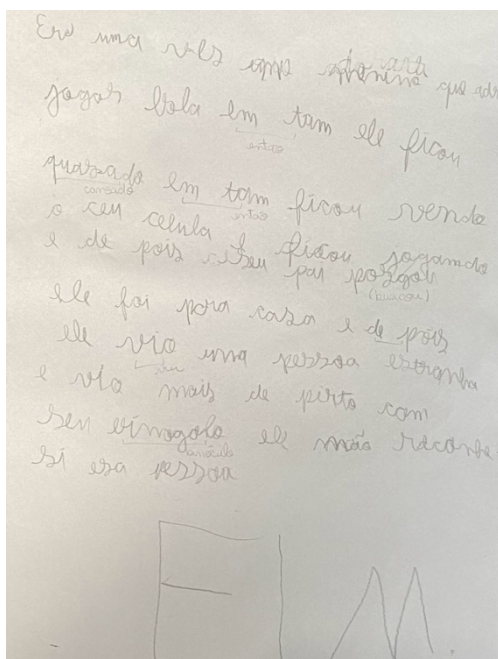 Era uma ves ump menino que
jogar bola em tam ele ficou
entao
quasado em tam ficou vendo
cansado entao
o ceu celula e ficou jogamdo
e de pois seu pai pozgou
(buscou)
ele foi pora casa e de pois
ele vio uma pessoa estranha
viu
e vio mais de pirto com
seu vinogolo ele não raconhe
binóculo
si esa pessoa
FIM.